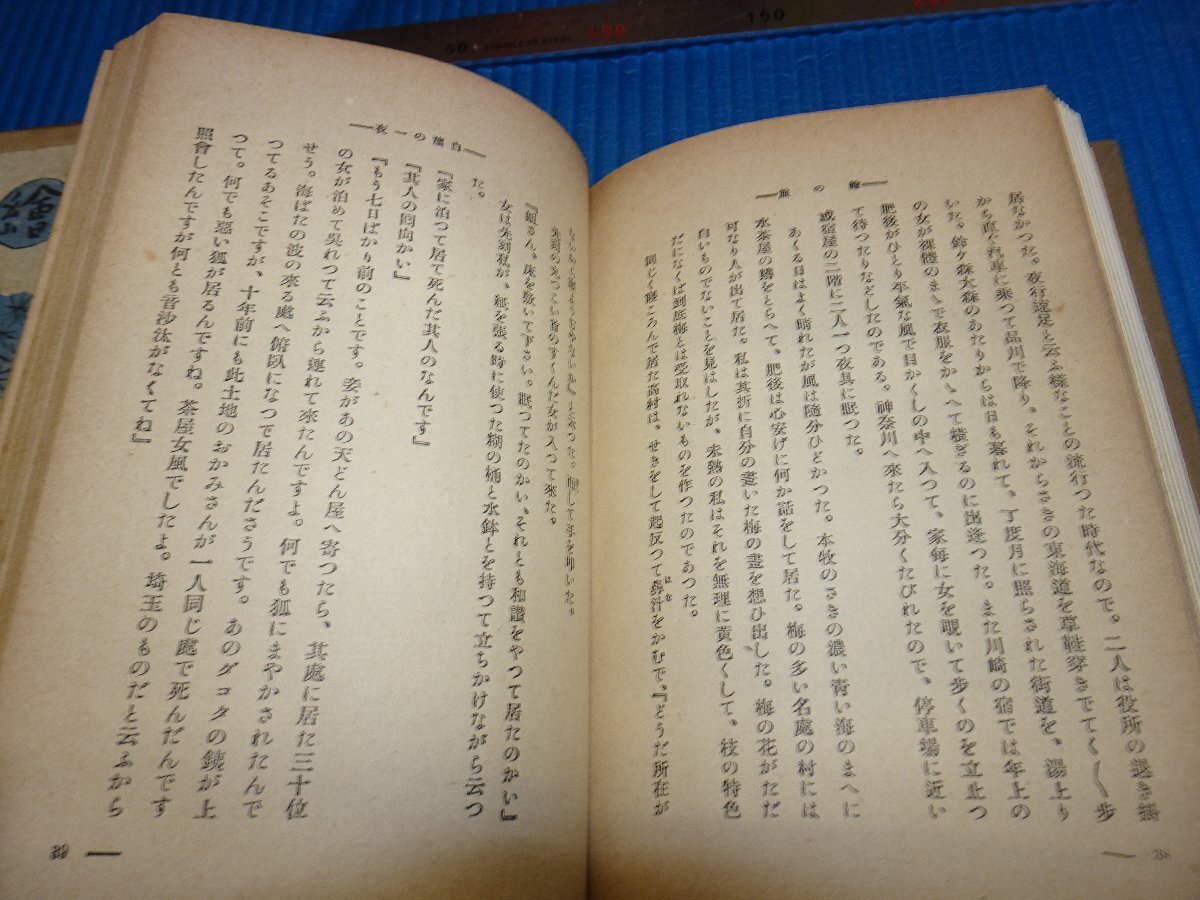 居なかつた。夜行遠足と云ふ樣なことの流行つた時代なので。二人は役所の退き
から直ぐ汽車に乘つて品川で降り、それからさきの東海道を草鞋穿きでてく〱步
いた。鈴ケ森大森のあたりからは日も暮れて、丁度月に照らされた街道を、湯上り
の女が裸體のまゝで衣服をかゝへて橫ぎるのに出逢つた。また川崎の宿では年上の
肥後がひとり平氣な風で目かくしの中へ入つて、家每に女を覗いて步くのを立止つ
て待つたりなどしたのである。神奈川へ來たら大分くたびれたので、停車場に近い
或宿屋の二階に二人一つ夜具に眠つた。
あくる日はよく晴れたが風は隨分ひどかつた。本牧のさきの濃い靑い海のまへに
水茶屋の をとらへて、肥後は心安げに何か話をして居た。梅の多い名處の村には
可なり人が出て居た。私は其折に自分の畫いた梅の畫を想ひ出した。梅の花がただ
白いものでないことを見はしたが、未熟の私はそれを無理に黃色くして、枝の特色
だになくば到底梅とは受取れないものを作つたのであつた。
同じく寢ころんで居た高村は、せきをして起反つて鼻汁をかむで、『どうだ所在が
はな
38
白濱の一夜
と云つた。 して手を叩いた。
女が入つて來た。
『姐さん、床を敷いて下さい。眠つてたのかい、それとも和讃をやつて居たのかい』
女は先刻私が、紙を張る時に使つた糊の桶と水鉢とを持つて立ちかけながら云つ
た。
『家に泊つて居て死んだ其人のなんです』
『其人の囘向かい』
『もう七日ばかり前のことです。妾があの天どん屋へ寄つたら、其處に居た三十位
の女が泊めて吳れつて云ふから連れて來たんですよ。何でも狐にまやかされたんで
せう。海ばたの波の來る處へ俯臥になつて居たんださうです。あのダコタの錢が上
つてるあそこですが、十年前にも此土地のおかみさんが一人同じ處で死んだんです
つて。何でも惡い狐が居るんですね。茶屋女風でしたよ。埼玉のものだと云ふから
照會したんですが何とも音沙汰がなくてね』
39
50
STAINLESS STEEL
100
150
200